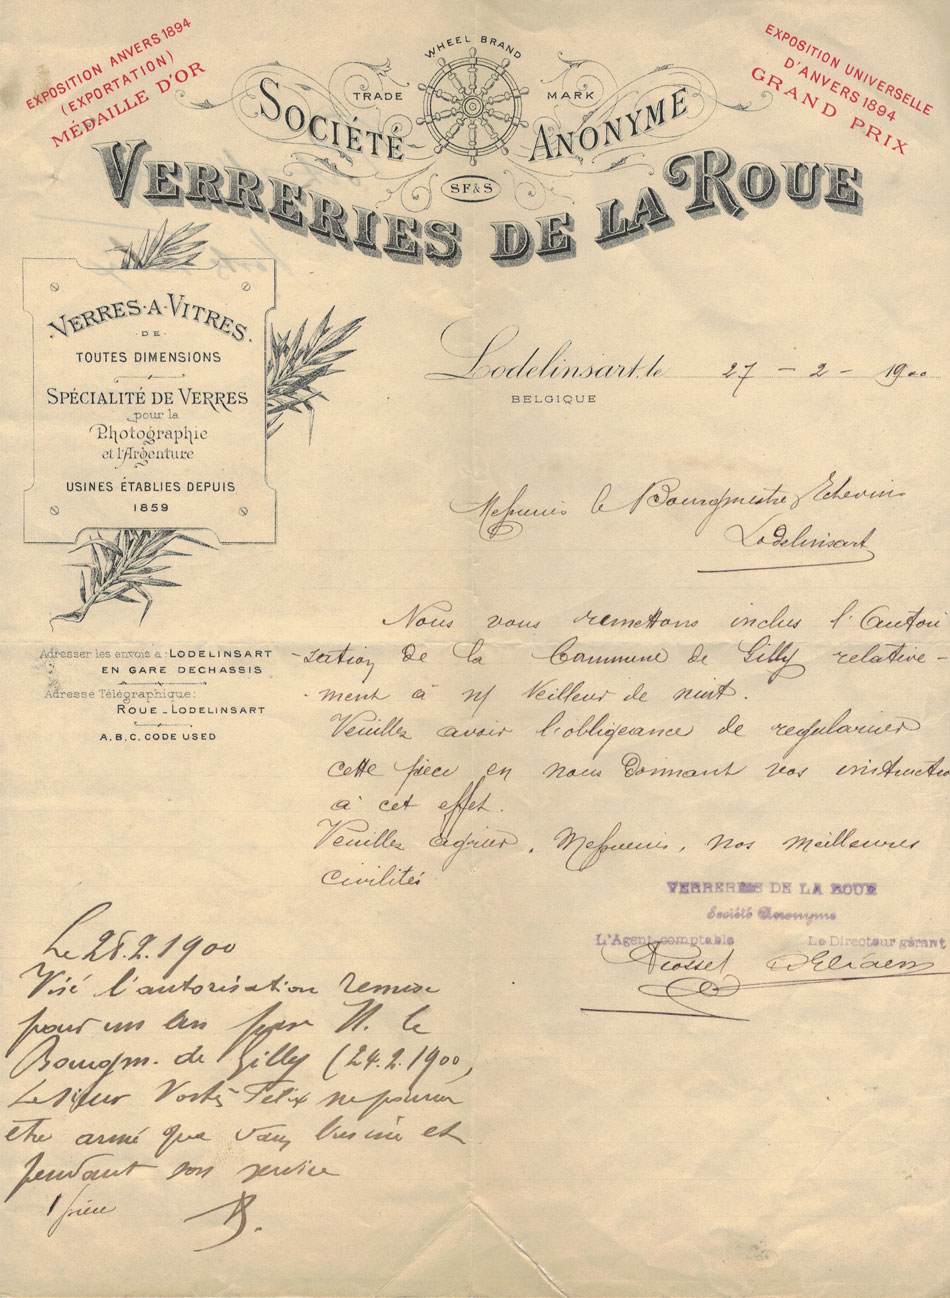 EXPOSITION ANVERS 1894
(EXPORTATION)
MÉDAILLE D'OR
WHEEL BRAND
TRADE MARK
EXPOSITION UNIVERSELLE
D'ANVERS 1894
GRAND PRIX
SOCIÉTÉ ANONYME
SF&S
VERRERIES DE LA ROUE
VERRES-A-VITRES
DE
TOUTES DIMENSIONS
SPÉCIALITÉ DE VERRES
pour la
Photographie
et l'Argenture
USINES ÉTABLIES DEPUIS
1859
Lodelinsart, le 27 - 2 - 1900
BELGIQUE
Messieurs le Bourgmestre Echevins
Lodelinsart
Nous vous remettons inclus l'Autori
-sation de la Commune de Gilly relative-
-ment à n/ Veilleur de nuit.
Veuillez avoir l'obligeance de regulariser
cette pièce en nous donnant vos instructio
à cet effet.
Veuillez agréer, Messieurs, nos meilleures
civilités
Adresser les envois à: LODELINSART
EN GARE DECHASSIS
Adresse Télégraphique:
ROUE_LODELINSART
A.B.C. CODE USED
VERRERIES DE LA ROUE
Société Anonyme
L'Agent comptable Le Directeur gérant
Le 28.2.1900
Visé l'autorisation remise
pour un an par M. le
Bourgm. de Gilly (24.2.1900,
Le sieur Félix ne pourra
être armé que dans l'usine et
pendant son service
1 pièce